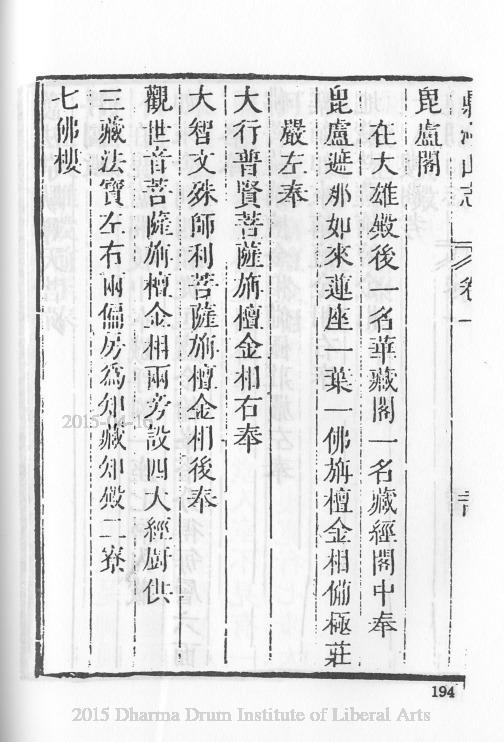 鼎湖山志 卷一
毘盧閣
在大雄殿後一名華藏閣一名藏經閣中奉
毘盧遮那如來蓮座一葉一佛旃檀金相備極莊
嚴左奉
大行普賢菩薩旃檀金相右奉
大智文殊師利菩薩旃檀金相後奉
觀世音菩薩旃檀金相兩旁設四大經廚供
三藏法寶左右兩偏房為知藏知殿二寮
七佛樓
2015-04-16
194
2015 Dharma Drum Institute of Liberal Arts